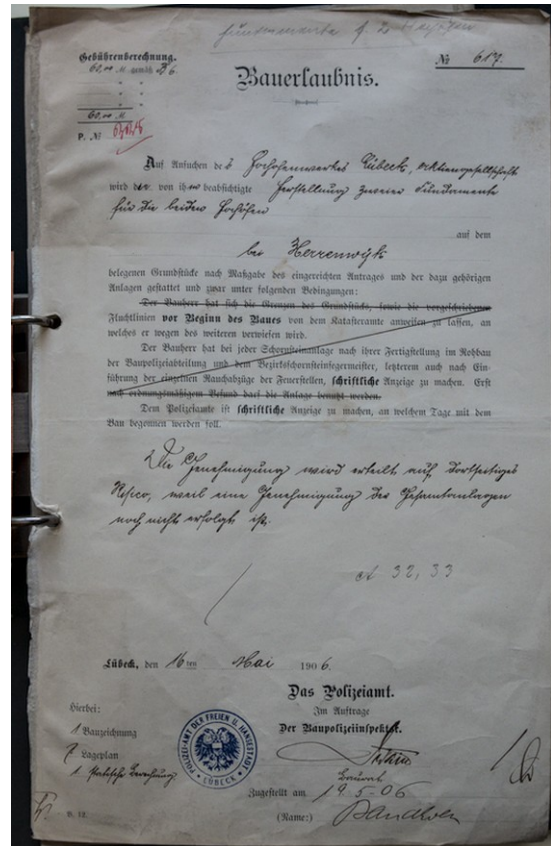 Fundamente f. 2
Gebührenberechnung.
60,00 M. gemäß B 6.
" "
" "
60,00 M.
P. №
№ 617.
Bauerlaubnis.
Auf Ansuchen des Hochofenwerkes Lübeck, Aktiengesellschaft
wird die von ihm beabsichtigte Herstellung zweier Fundamente
für die beiden Hochöfen
auf dem
bei Herrenwyk
belegenen Grundstücke nach Maßgabe des eingereichten Antrages und der dazu gehörigen
Anlagen gestattet und zwar unter folgenden Bedingungen:
Der Bauherr hat sich die Grenzen des Grundstücks, sowie die vorgeschriebenen
Fluchtlinien vor Beginn des Baues von dem Katasteramte anweisen zu lassen, an
welches er wegen des weiteren verwiesen wird.
Der Bauherr hat bei jeder Schornsteinanlage nach ihrer Fertigstellung im Rohbau
der Baupolizeiabteilung und dem Bezirksschornsteinfegermeister, letzterem auch nach Ein-
führung der einzelnen Rauchabzüge der Feuerstellen, schriftliche Anzeige zu machen. Erst
nach ordnungsmäßigem Befund darf die Anlage benutzt werden.
Dem Polizeiamte ist schriftliche Anzeige zu machen, an welchem Tage mit dem
Bau begonnen werden soll.
Die Genehmigung wird erteilt auf dortseitiges
Risico, weil eine Genehmigung der Gesamtanlagen
noch nicht erfolgt ist.
A 32, 33
Lübeck, den 16ten Mai 1906.
Das Polizeiamt.
Im Auftrage
Der Baupolizeiinspektor.
Hierbei:
1 Bauzeichnung
Lageplan
1 statische Berechnung
POLIZEI-AMT DER FREIEN U. HANSESTADT LÜBECK
Baurat
Zugestellt am 19.5.06
(Name:)
B. 12.